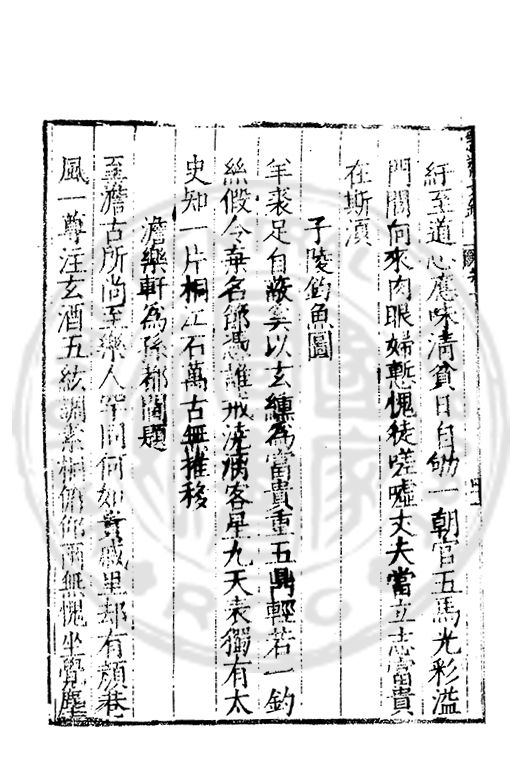 紆至道心應味清貧日自劬一朝官五馬光彩溢
門閭向來肉眼婦慙愧徒嗟嘘丈夫當立志富貴
在斯須
子陵釣魚圖
羊裘足自蔽奚以玄纁為富貴重五鼎輕若一釣
絲假令棄名郎馮誰戒滂病客星九天表獨有太
史知一片桐江石萬古無推移
澹樂軒為孫都閫題
至澹古所尚至樂人罕同何如貴戚里却有顏巷
風一尊注玄酒五絃調素桐俯仰兩無愧坐覺塵